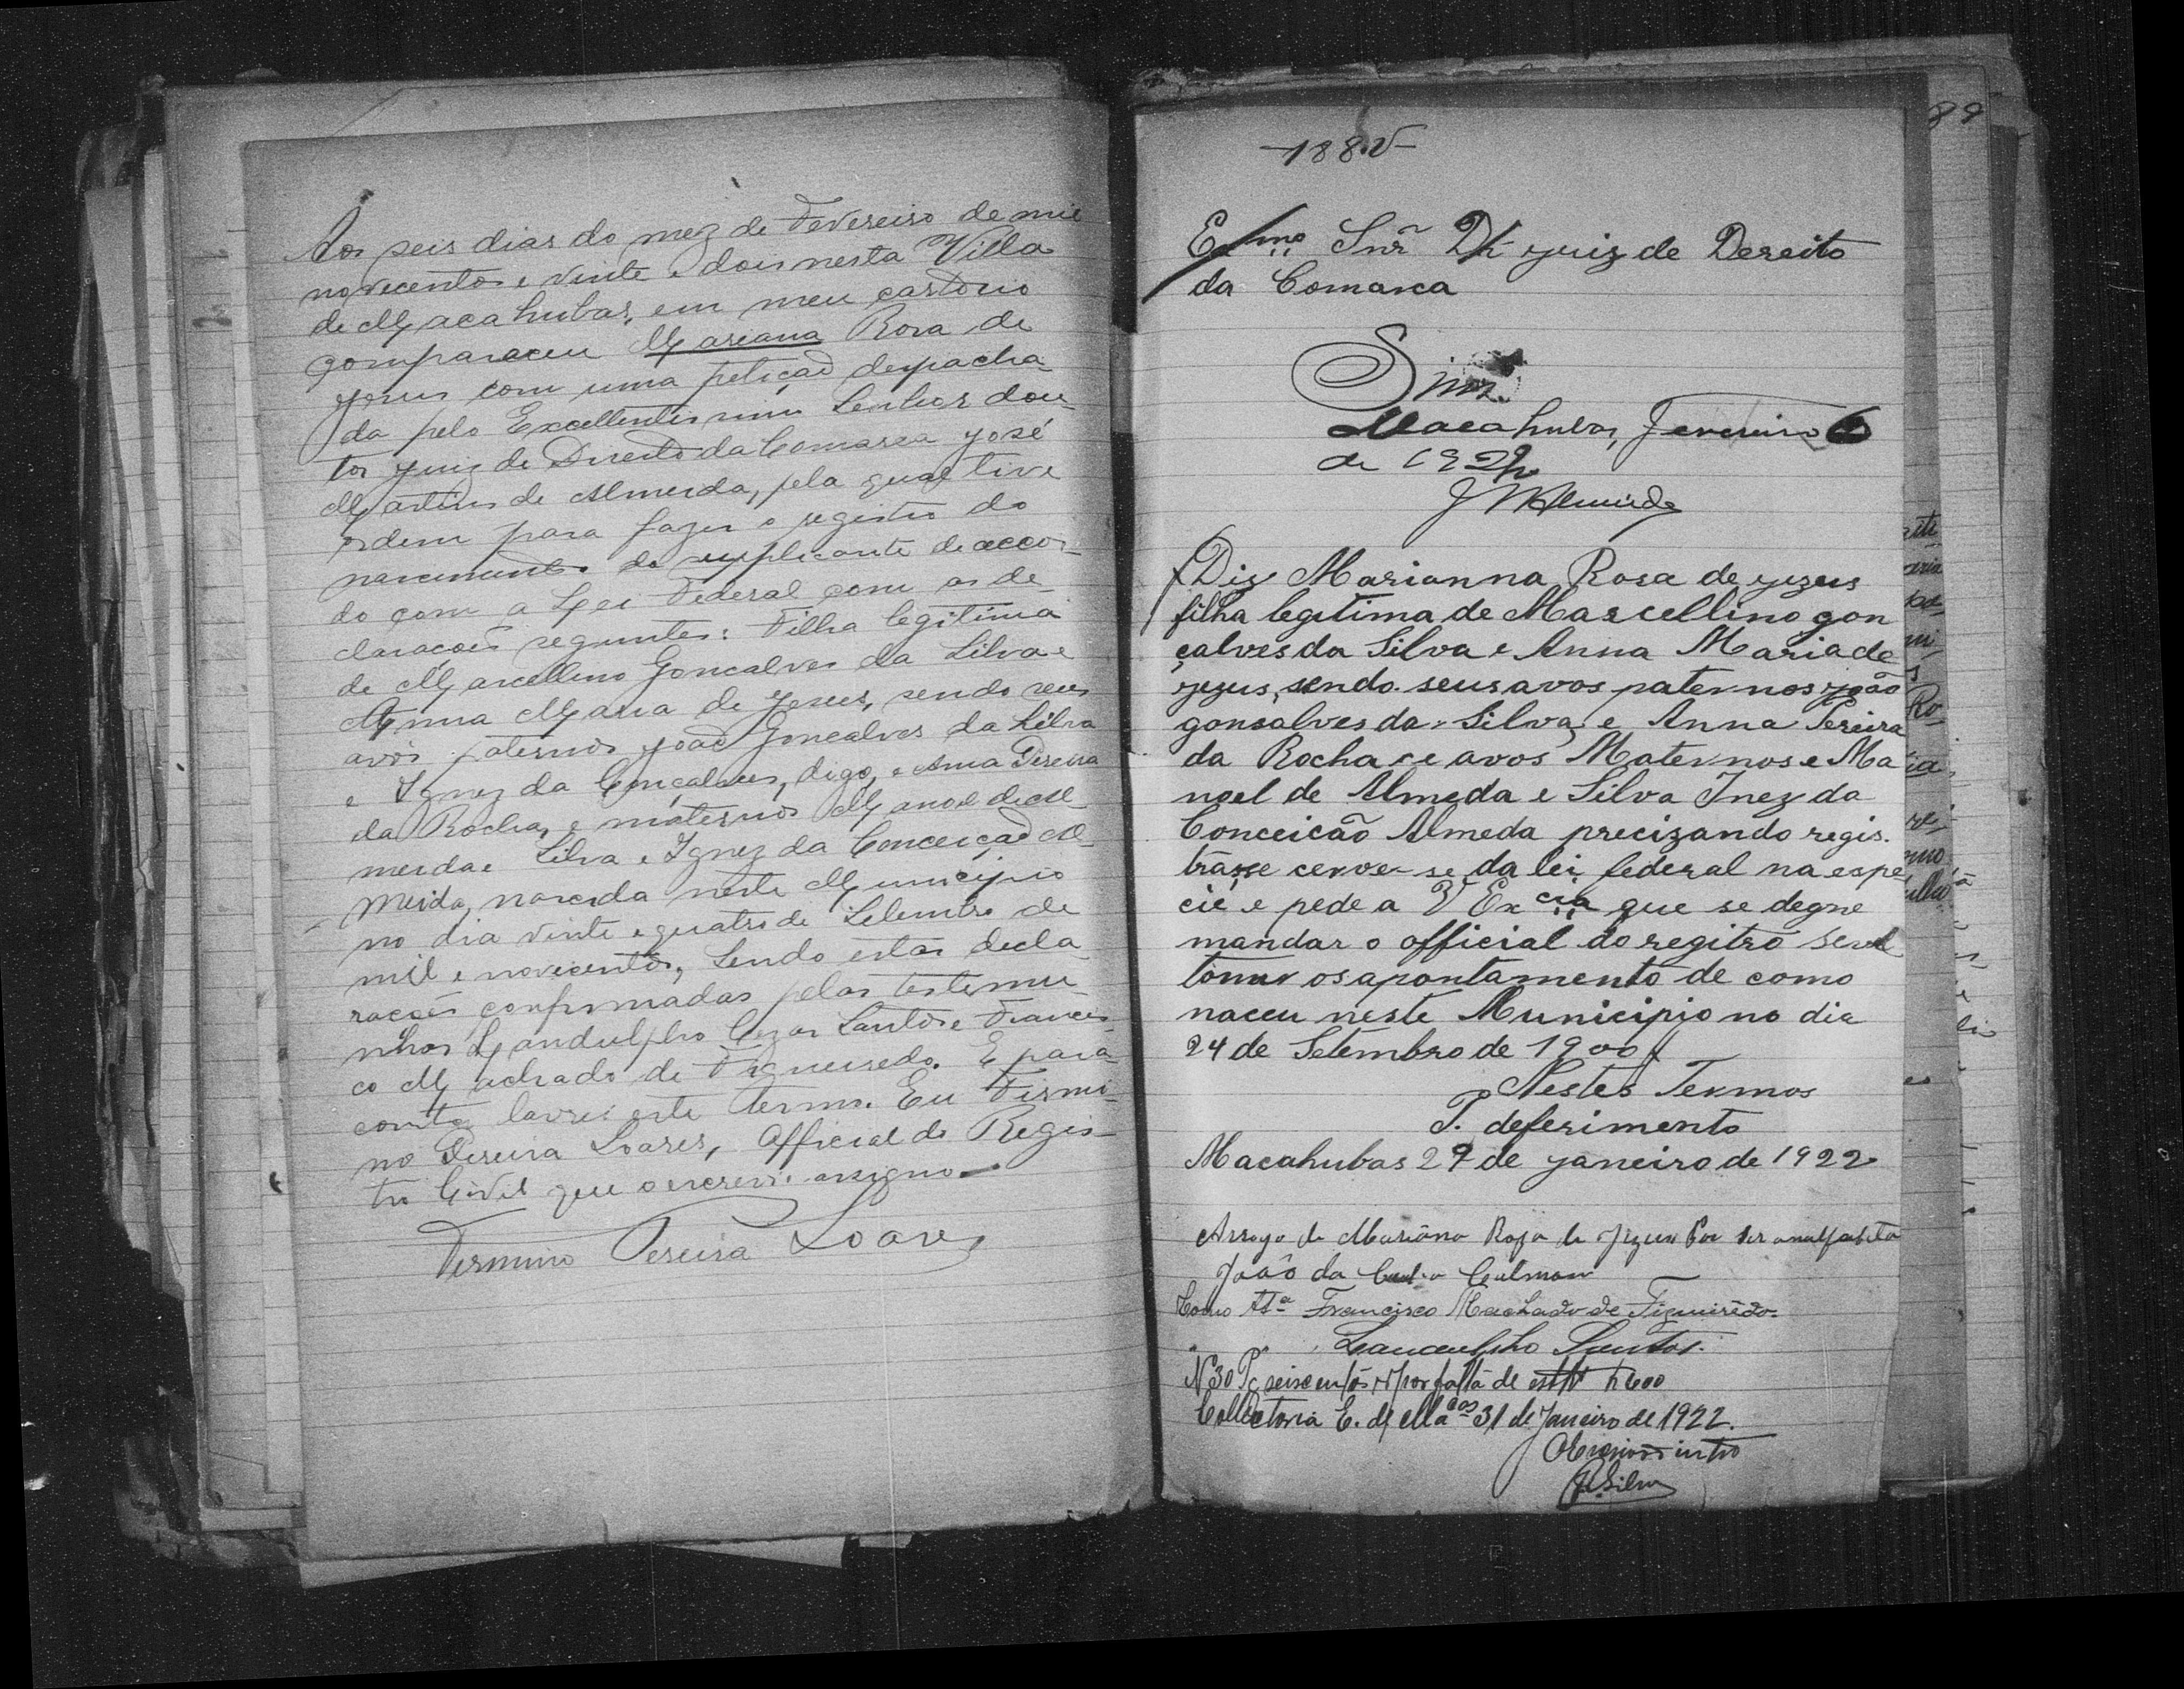 Aos seis dias do mez de Fevereiro de mil
novecentos e vinte e dois nesta Villa
de Macahubas, em meu cartorio
compareceu Mareana Rosa de
Jesus com uma petição despacha-
da pelo Excellentissimo Senhor dou-
tor Juiz de Direito da Comarca José
Martins de Almeida, pela qual tive
ordem para fazer o registro do
nascimento da supplicante de accor-
do com a Lei Federal com as de-
claraçoes seguintes: Filha legitima
de Marcellino Gonçalves da Silva e
Anna Maria de Jesus, sendo seus
avós paternos João Gonçalves da Silva
e Ignez da Conçalves, digo, e Anna Pereira
da Rocha, e maternos Manoel de Al-
meida e Silva e Ignez da Conceição Al-
meida, nascida neste Municipio
no dia vinte e quatro de Setembro de
mil e novecentos, sendo estas decla-
rações confirmadas pelas testemu-
nhas Landulpho Cezar Santos e Francis-
co Machado de Figueiredo. E para
constar lavrei este termo. Eu Firmi-
no Pereira Soares, Official do Regis-
tro Civil que o escrevi e assigno
Firmino Pereira Soares
89
-188.V-
Exmo Snr Dr Juiz de Dereito
da Comarca
Sim.
Macahubas, Fevereiro 6
de 1922
J M Almeida
Diz Marianna Rosa de jezus
filha legitima de Marcellino gon
çalves da Silva e Anna Maria de
jezus, sendo seus avos paternos joão
gonsalves da Silva e Anna Pereira
da Rocha e avos Maternos e Ma
noel de Almeda e Silva Inez da
Conceicão Almeda precizando regis.
trasse cerve-se da lei federal na espe
cie e pede a V Excia que se degne
mandar o official do registro
tomar os apontamento de como
naceu neste Municipio no dia
24 de Setembro de 1900
Nestes Termos
P. deferimento
Macahubas 29 de janeiro de 1922
Arrogo de Mariana Roza de Jezus Por ser analfabeta
João da Calmon
Como tta Francisco Machado de Figueirêdo.
" " Landulpho Santos.
N 30 Pg seiscentos rs por falta de estta $600
Collectoria E. de Macas 31 de Janeiro de 1922.
Silva